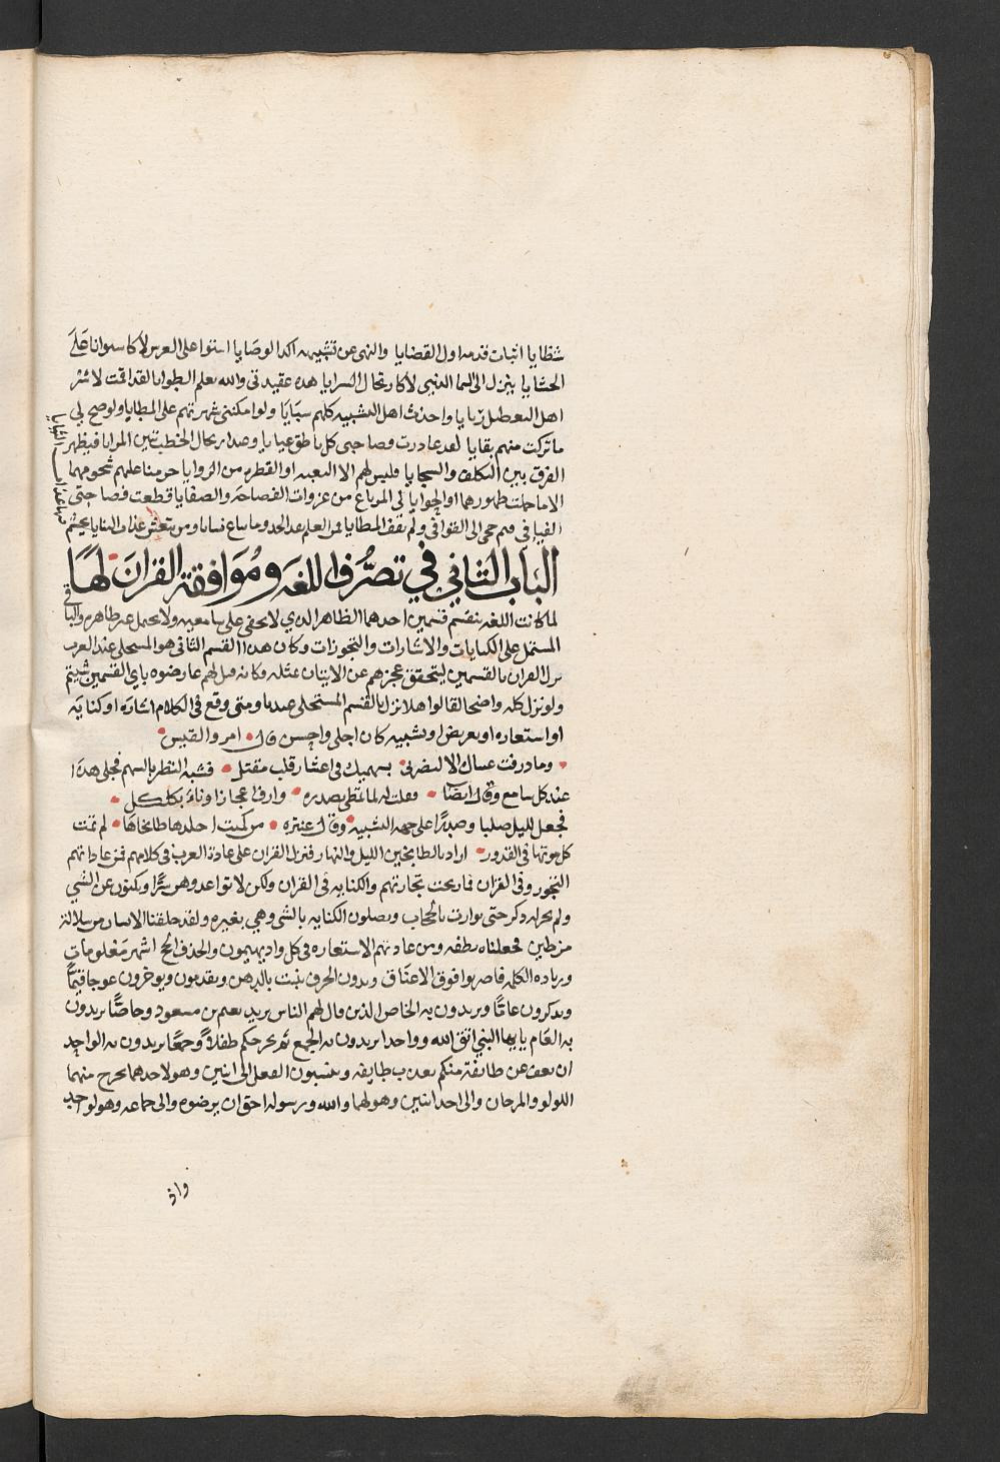 شظايا اثبات قدمه اول القضايا والنهي عن تشبيهه اكد الوصايا استوا على العرش لا كاستوانا على
الحشايا ينزل الى السما الدنيى لا كارتحال السرايا هذه عقيدتي والله يعلم الطوايا لقد اقمت لاشر
اهل التعطيل رزايا واخذت اهل التشبيه كلهم سبايا ولو امكنني شهرتهم على المطايا ولو صح لي
ما تركت منهم بقايا لقد عادرت فصاحتي كل ناطق عيايا وصدا ربحال الخطب بين المرايا فيظهر
الفرق بين التكلف والسجايا فليس لهم الا البعبه او القطره من الروايا حرمنا عليهم شحومهما
الا ما حملت ظهورهما او الحوايا لي المرباع من غزوات الفصاحة والصفايا قطعت فصاحتي
الفيافي فهم حمى الى القوافي ولم تقف المطايا في العلم عند الحد وما يباع نسايا ومن يتعش عذاف المنايا يحيثم
الباب الثاني في تصرف اللغه وموافقة القران لها
لما كانت اللغه تنقسم قسمين احدهما الظاهر الذي لا يخفى على سامعيه ولا يحتمل غير ظاهره والثاني
المشتمل على الكنايات والاشارات والتجوزات وكان هذا القسم الثاني هو المستحلى عند العرب
نزل القران بالقسمين ليتحقق عجزهم عن الاتيان بمثله وكانه قيل لهم عارضوه باي القسمين شيتم
ولو نزل كله واضحا لقالوا هلا نزل بالقسم المستحلى عندنا ومتى وقع في الكلام اشاره او كنايه
او استعاره او تعريض او تشبيه كان احلى واحسن قال امرو القيس
وما ذرفت عيناك الا لتضربي بسهميك في اعشار قلب مقتل فشبه النظر بالسهم فحلى هذا
عند كل سامع وقال ايضا وقلت له لما تمطى بصدره واردف اعجازا وناء بكلكل
فجعل لليل صلبا وصدرا على جهة التشبيه وقال عنتره من كميت اجلدها طابخاها لم تمت
كل موتها في القدور اراد بالطابخين الليل والنهار فنزل القران على عادة العرب في كلامهم فمن عاداتهم
التجوز وفي القران فما ربحت تجارتهم والكنايه في القران ولكن لا تواعدوهن سرا ويكنون عن الشي
ولم يجر له ذكر حتى توارت بالحجاب ويصلون الكنايه بالشي وهي بغيره ولقد خلقنا الانسان من سلالة
من طين ثم جعلناه نطفه ومن عادتهم الاستعاره في كل واد يهيمون والحذف الحج اشهر معلومات
وزياده الكلمه فاضربوا فوق الاعناق ويزيدون الحرف تنبت بالدهن ويقدمون ويوخرون عوجا قيما
ويذكرون عاما ويريدون به الخاص الذين قال لهم الناس يريد نعيم بن مسعود وخاصا يريدون
به العام يايها النبي اتق الله وواحدا يريدون به الجمع ثم يخرجكم طفلا وجمعا يريدون به الواحد
ان نعف عن طايفة منكم نعذب طايفه وينسبون الفعل الى اثنين وهو لاحدهما يخرج منهما
اللولو والمرجان والى احد اثنين وهو لهما والله ورسوله احق ان يرضوه والى جماعه وهو لواحد